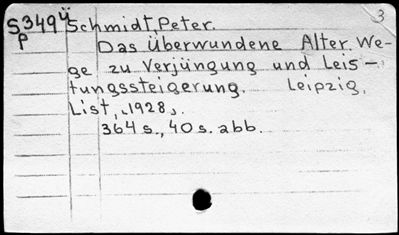 3
S349ü Schmidt, Peter.
p
Das Überwundene Alter. We-
ge zu Verjüngung und Leis-
tungssteigerung. Leipzig,
List, [1928].
364 s., 40 s. abb.